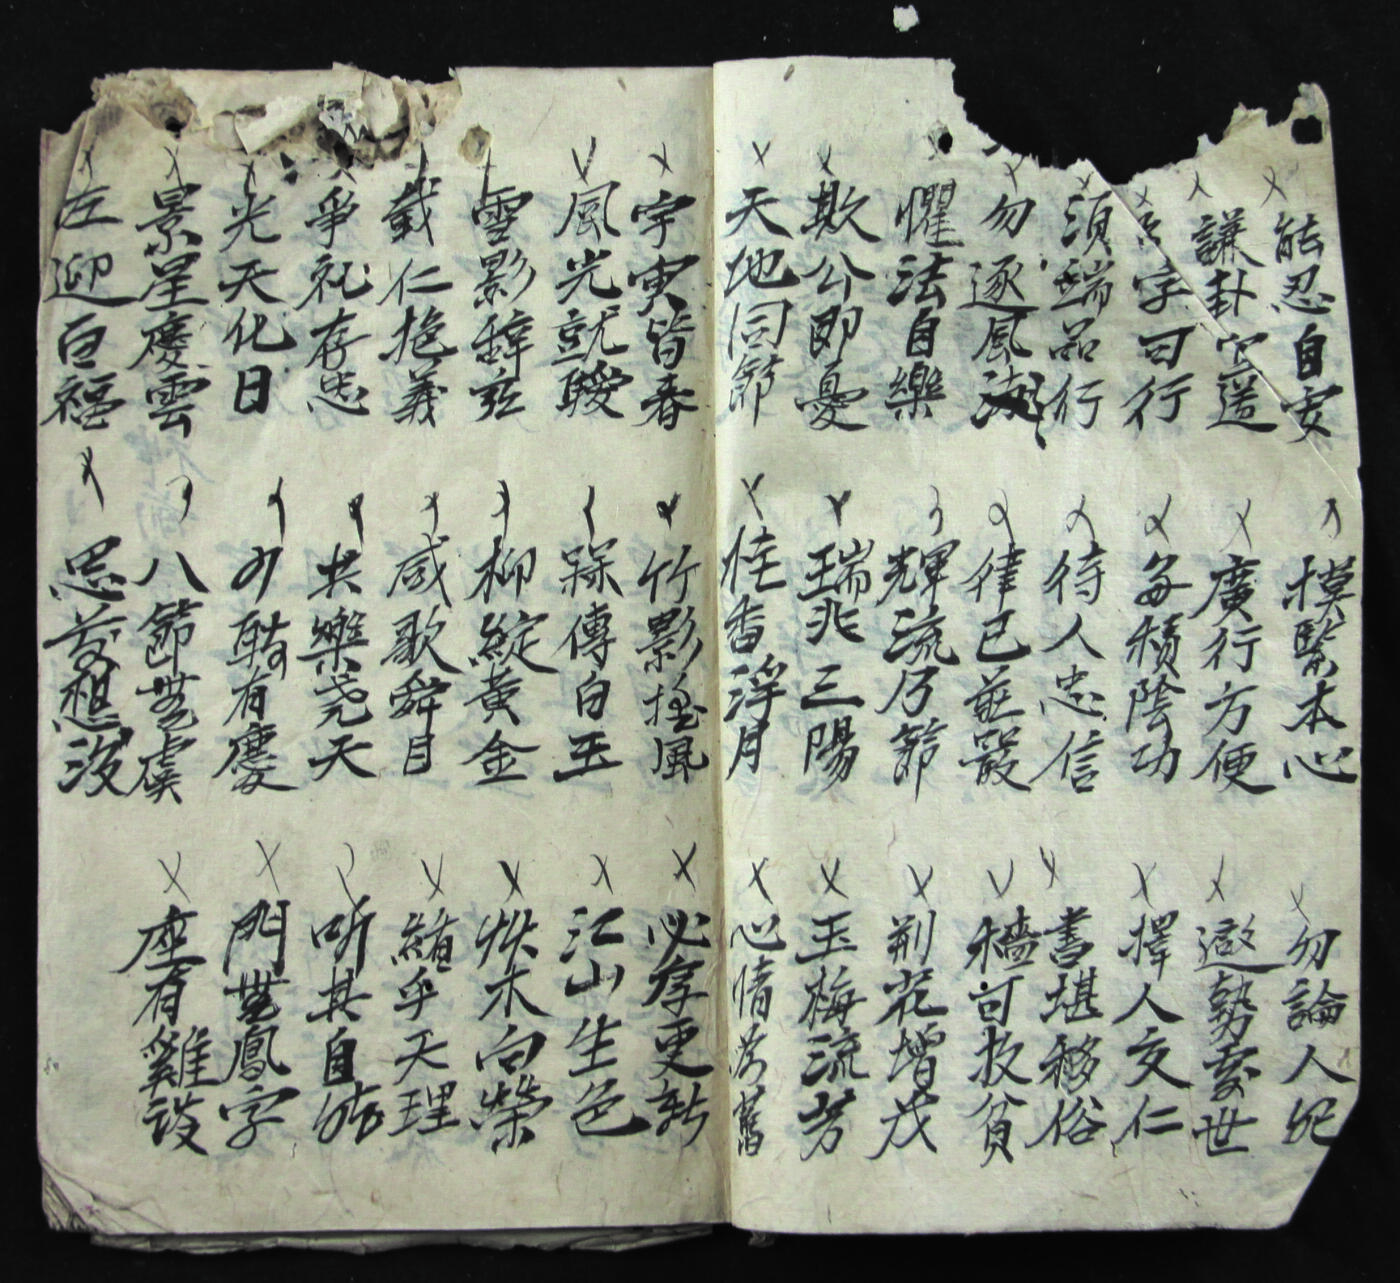 能忍自安
謙卦宜遵
字可行
須端品行
勿逐風波
懼法自樂
欺公即憂
天地同節
摸緊本心
廣行方便
多積陰功
待人忠信
律己莊嚴
輝流乃節
瑞兆三陽
佳香浮月
勿論人
勢處世
擇人交仁
書堪移俗
穡可扶貧
荆花增茂
玉梅流芳
心情為舊
宇寅皆春
風光就暖
雪影辭
戴仁抱義
爭礼存忠
光天化日
景星慶雲
左迎百福
竹影搖風
槑傳白玉
柳綻黄金
咸歌舜日
共樂堯天
有慶
八節無虞
恩想波
必存更新
江山生色
木向榮
緒乎天理
听其自然
門無鳳字
座有雞談